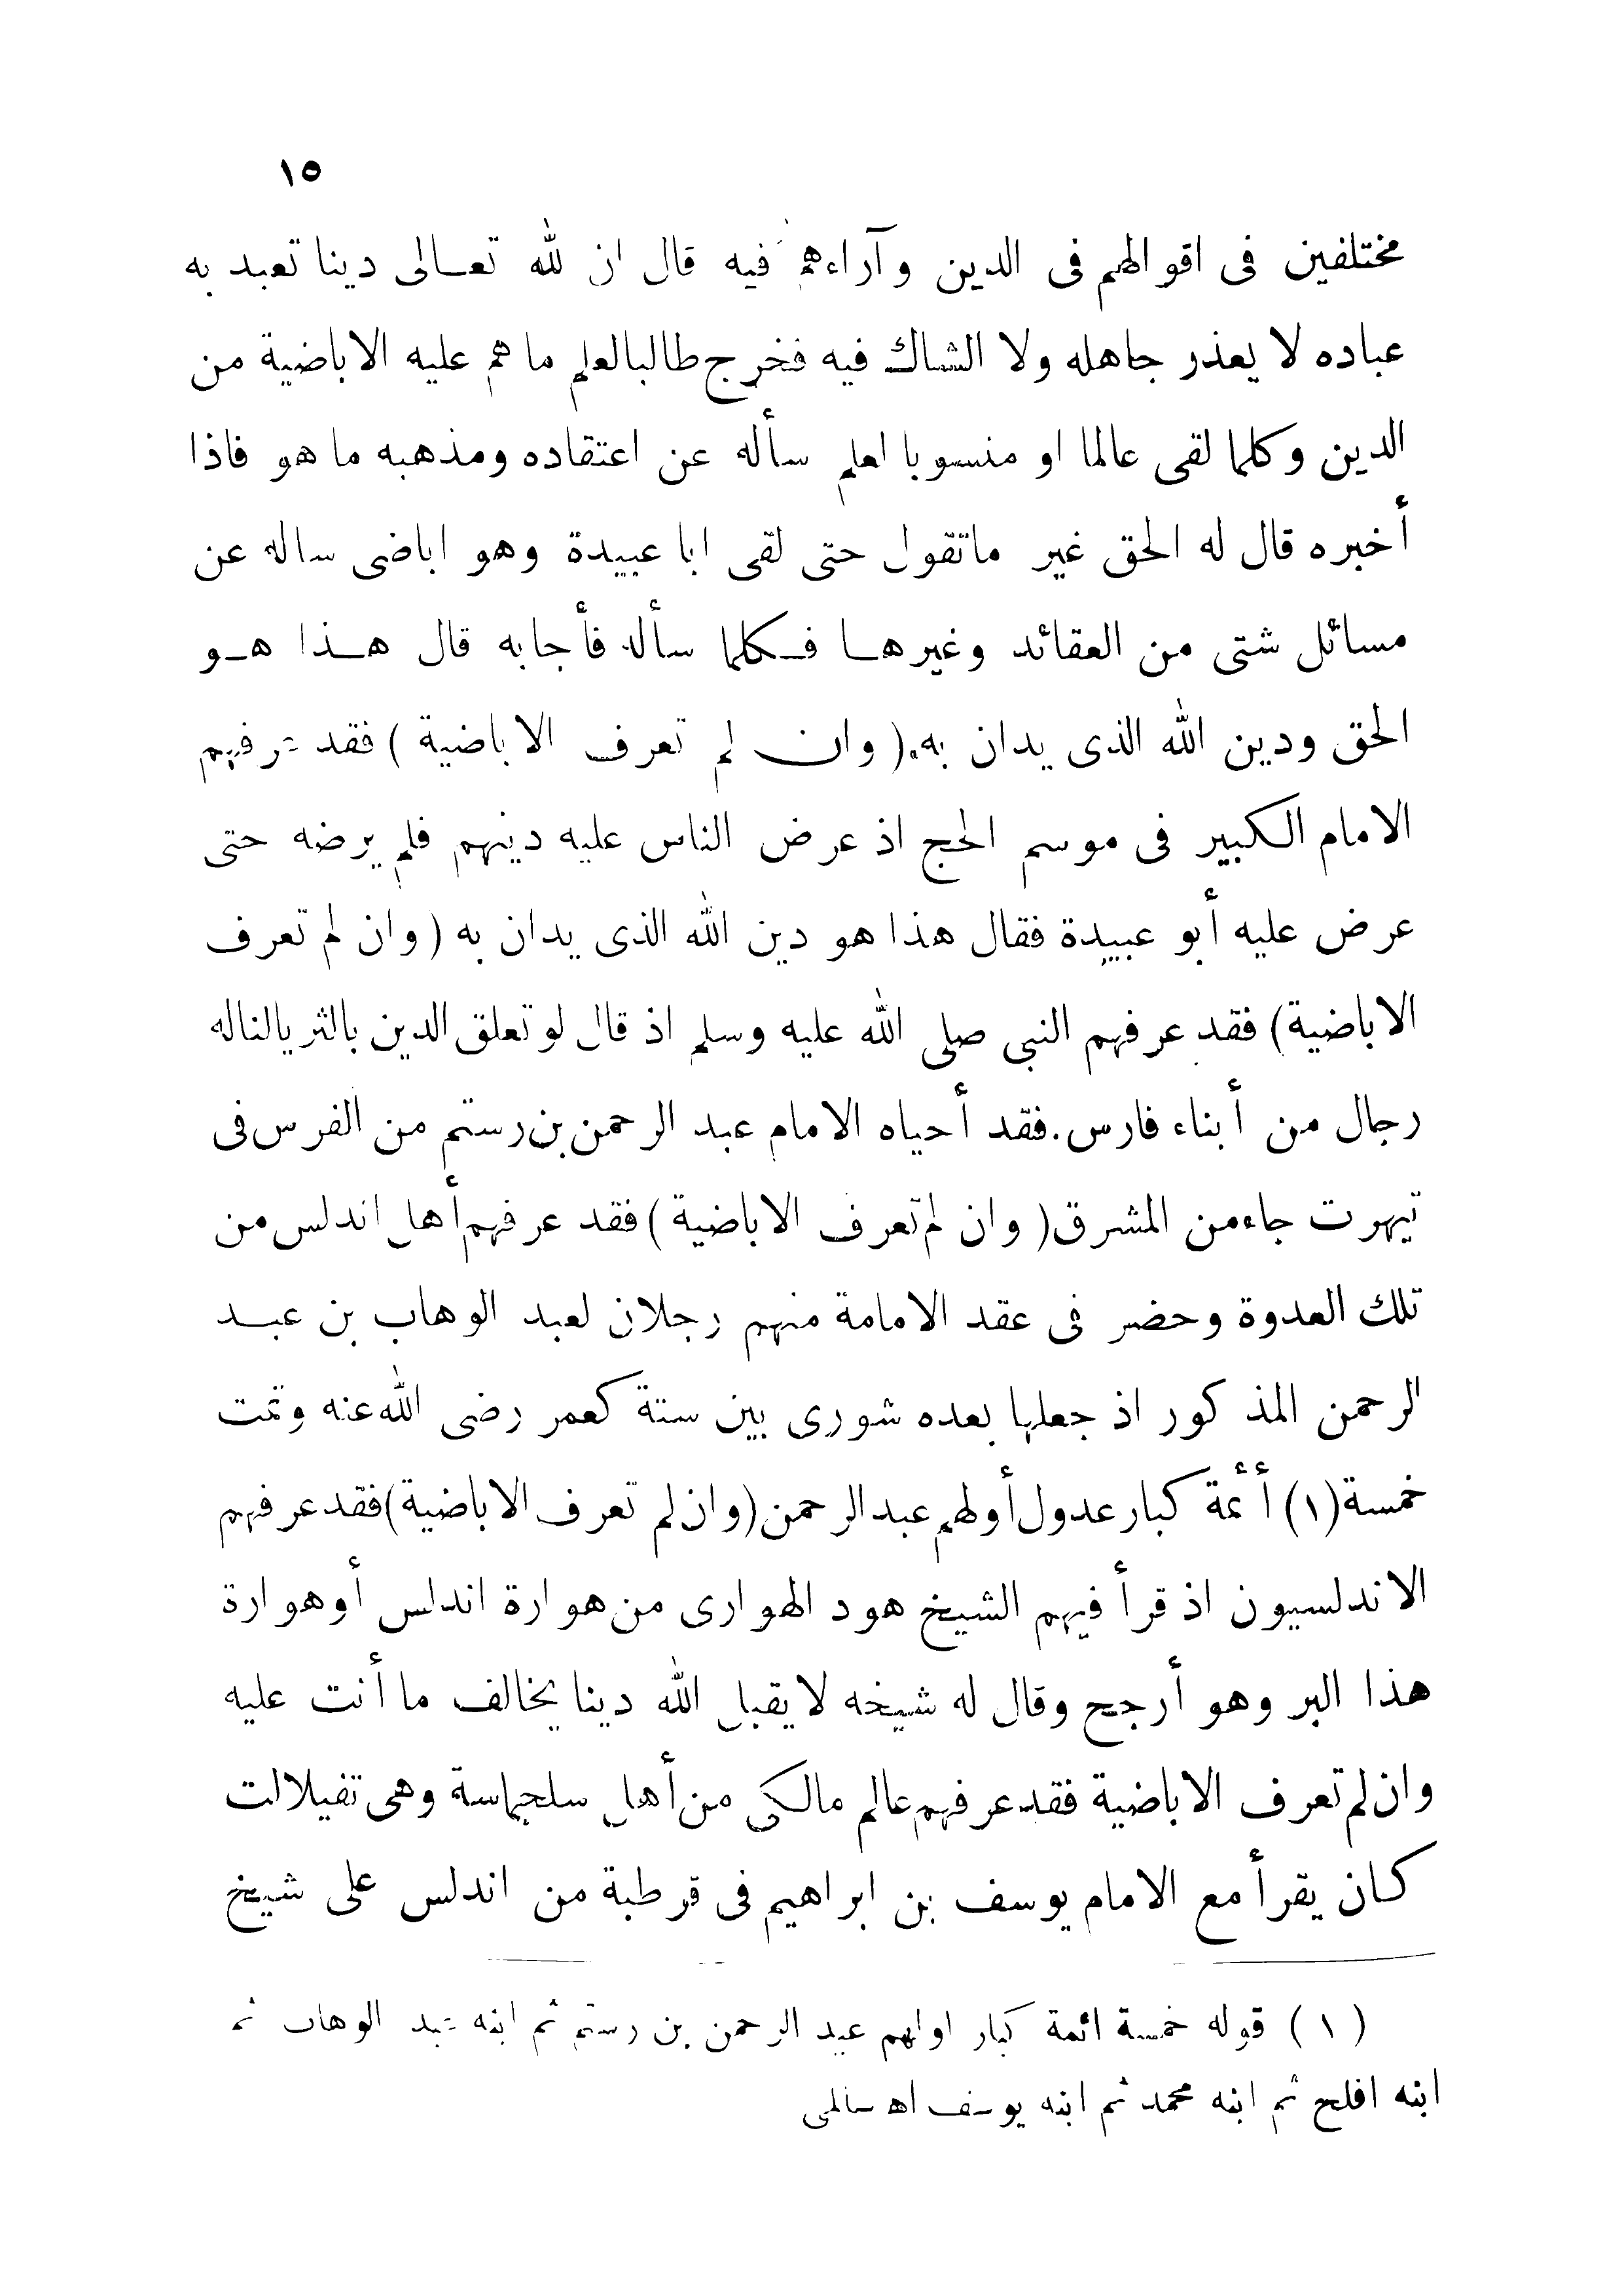 ١٥
مختلفين فى اقوالهم فى الدين وآراءهم فيه قال ان لله تعالى دينا تعبد به
عباده لا يعذر جاهله ولا الشاك فيه فخرج طالبا لعلم ما هم عليه الاباضية من
الدين وكلما لقى عالما او منسوبا لعلم سأله عن اعتقاده ومذهبه ما هو فاذا
أخبره قال له الحق غير ماتقول حتى لقى ابا عبيدة وهو اباضى ساله عن
مسائل شتى من العقائد وغيرها فكلما سأله فأجابه قال هذا هو
الحق ودين الله الذى يدان به. (وان لم تعرف الاباضية) فقد عرفهم
الامام الكبير فى موسم الحج اذ عرض الناس عليه دينهم فلم يرضه حتى
عرض عليه أبو عبيدة فقال هذا هو دين الله الذى يدان به (وان لم تعرف
الاباضية) فقد عرفهم النبى صلى الله عليه وسلم اذ قال لو تعلق الدين بالثريا لناله
رجال من أبناء فارس. فقد أحياه الامام عبد الرحمن بن رستم من الفرس فى
تيهرت جاء من المشرق (وان لم تعرف الاباضية) فقد عرفهم أهل اندلس من
تلك العدوة وحضر فى عقد الامامة منهم رجلان لعبد الوهاب بن عبد
الرحمن المذكور اذ جعلها بعده شورى بين ستة كعمر رضى الله عنه وتمت
خمسة (١) أئمة كبار عدول أولهم عبد الرحمن (وان لم تعرف الاباضية) فقد عرفهم
الاندلسيون اذ قرأ فيهم الشيخ هود الهوارى من هوارة اندلس أو هوارة
هذا البر وهو أرجح وقال له شيخه لا يقبل الله دينا يخالف ما أنت عليه
وان لم تعرف الاباضية فقد عرفهم عالم مالكى من أهل سلجماسة وهى تفيلالت
كان يقرأ مع الامام يوسف بن ابراهيم فى قرطبة من اندلس على شيخ
(١) قوله خمسة ائمة كبار اولهم عبد الرحمن بن رستم ثم ابنه عبد الوهاب ثم
ابنه افلح ثم ابنه محمد ثم ابنه يوسف اه سالمى